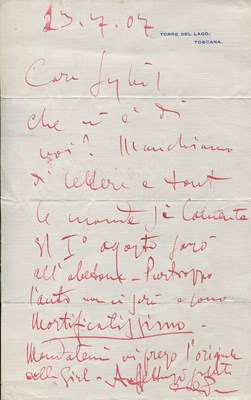 23.7.07
TORRE DEL LAGO,
TOSCANA.
Cara Sybil
che n'è di
voi? Manchiamo
di lettere e tout
le monde si lamenta
Il 1º agosto sarò
all'abetone - Purtroppo
l'auto non ci sarà e sono
Mortificatissimo.
Mandatemi vi prego l'origine
della Girl - Aff